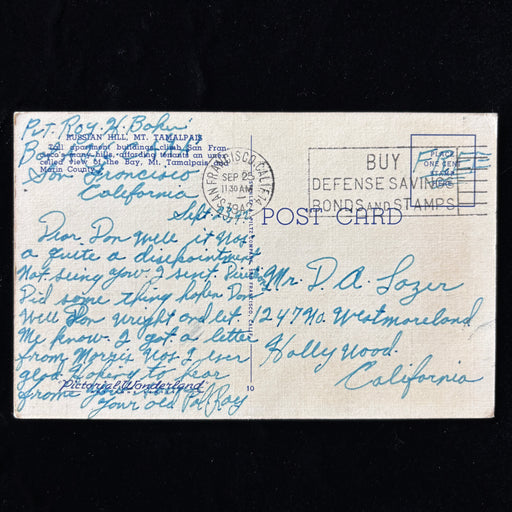 Pvt. Roy H. Baker
RUSSIAN HILL, MT. TAMALPAIS
Tall apartment buildings climb San Fran-
cisco's many hills, affording tenants an unex-
celled view of the Bay, Mt. Tamalpais and
Marin County.
San Francisco
California
Sept. 23, 42
Dear Don Well it was
a quite a disepointment
Not seing you. I sent
Did some thing hapen Don
Well Don wright and let
Me know. I got a letter
from Morris Was I ever
glad. Hoping to hear
frome you
your old Pal Roy
Pictorial Wonderland
10
SAN FRANCISCO, CALIF. 14
SEP 25
11:30 AM
1942
BUY
DEFENSE SAVINGS
BONDS AND STAMPS
Free
PLACE
ONE CENT
STAMP
HERE
POST CARD
Mr. D. A. Lozer
1247 No. Westmoreland
Hollywood.
California